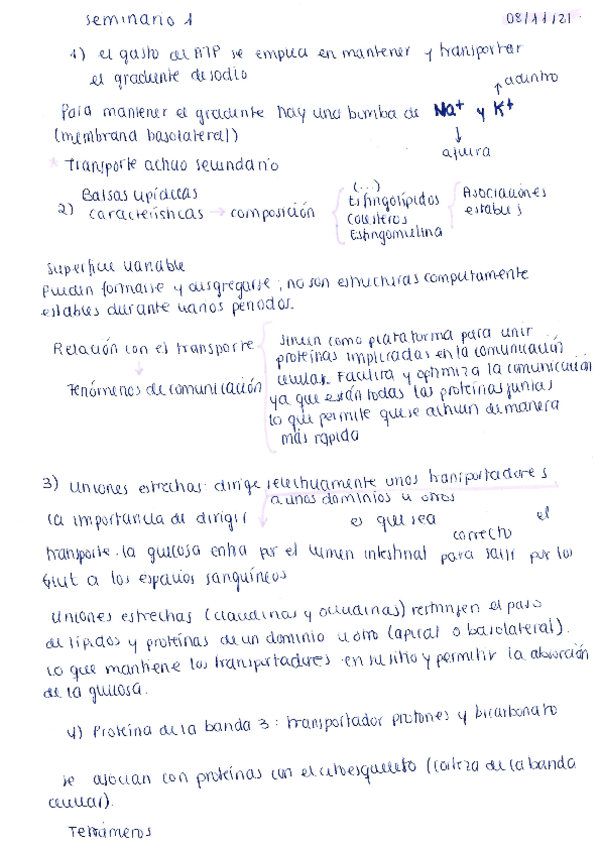 seminario 1
08/11/21
1) el gasto del ATP se emplea en mantener y transportar
el gradiente de sodio
Para mantener el gradiente hay una bomba de Na+ y K+
adentro
(membrana basolateral)
afuera
* Transporte activo secundario
2) Balsas lipídicas
características → composición
(...)
Esfingolípidos
Colesteros
Esfingomielina
Asociaciones
estables
Superficie variable
Pueden formarse y disgregarse, no son estructuras completamente
estables durante varios periodos.
Relación con el transporte
↓
Fenómenos de comunicación
sirven como plataforma para unir
proteínas implicadas en la comunicación
celular. Facilita y optimiza la comunicación
ya que están todas las proteínas juntas
lo que permite que se activen de manera
más rápida
3) Uniones estrechas: dirige selectivamente unos transportadores
a unos dominios u otros
la importancia de dirigir es que sea correcto el
transporte. la glucosa entra por el lumen intestinal para salir por los
Glut a los espacios sanguíneos
Uniones estrechas (claudinas y ocludinas) restringen el paso
de lípidos y proteínas de un dominio u otro (apical o basolateral).
lo que mantiene los transportadores en su sitio y permitir la absorción
de la glucosa.
4) Proteína de la banda 3: transportador protones y bicarbonato
se asocian con proteínas con el citoesqueleto (corteza de la banda
celular).
Tetrámeros